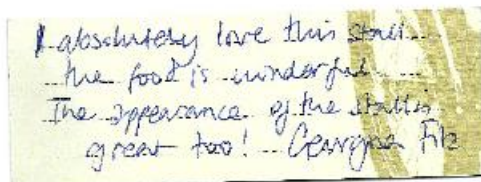 I absolutely love this stall
the food is wonderful
The appearance of the stall is
great too! Georgina Fitz